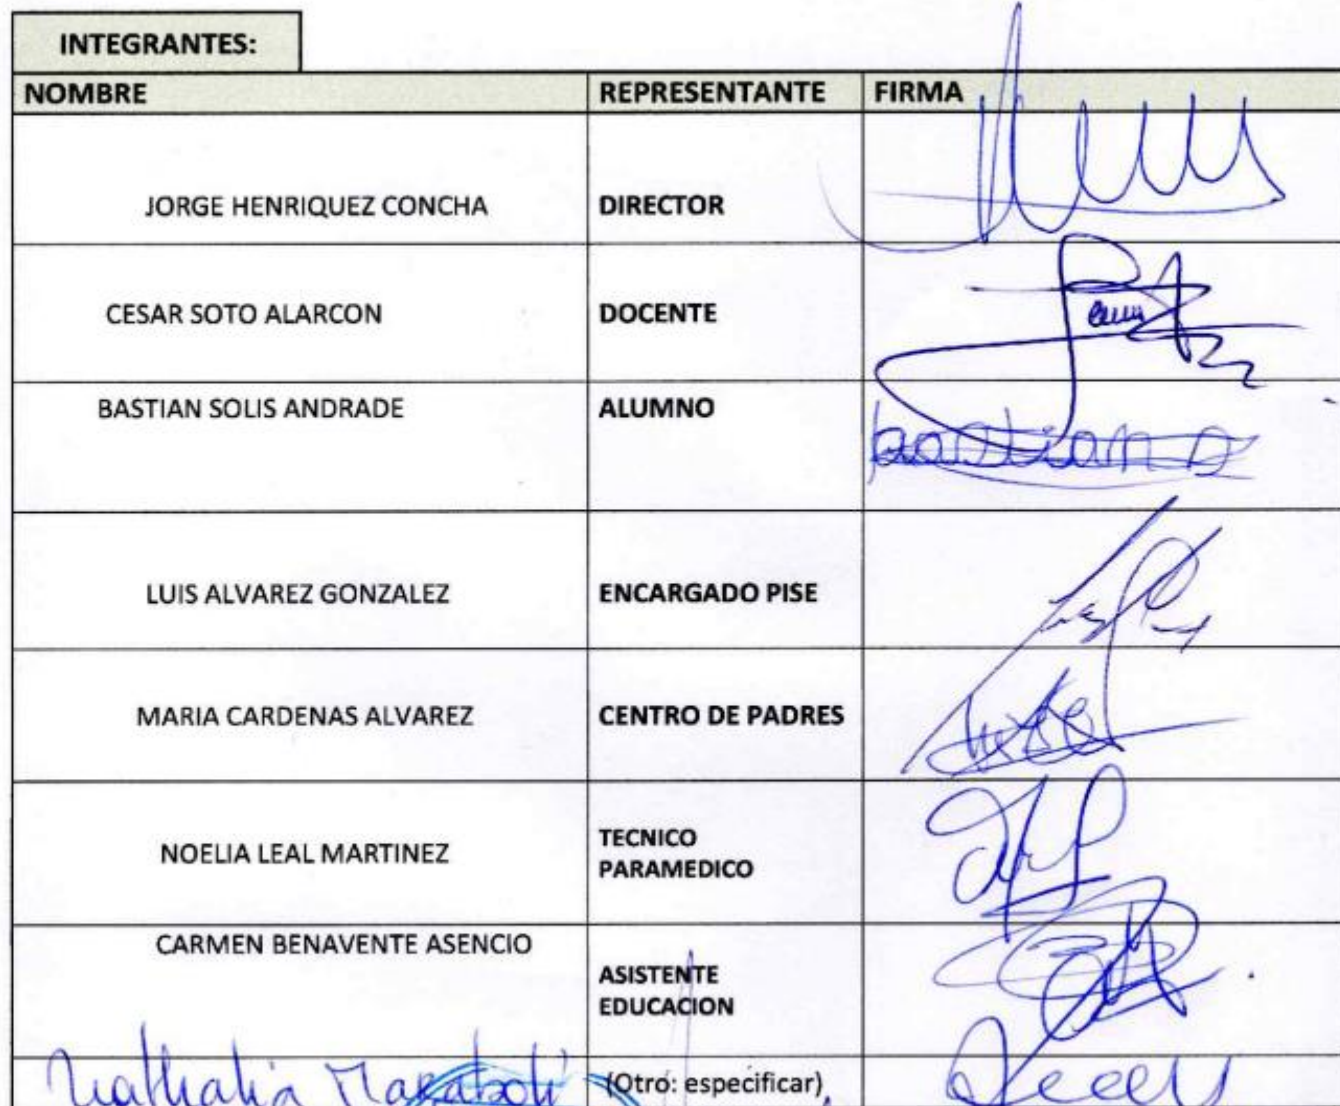 INTEGRANTES:
NOMBRE REPRESENTANTE FIRMA
JORGE HENRIQUEZ CONCHA DIRECTOR
CESAR SOTO ALARCON DOCENTE
BASTIAN SOLIS ANDRADE ALUMNO
bastian s
LUIS ALVAREZ GONZALEZ ENCARGADO PISE
MARIA CARDENAS ALVAREZ CENTRO DE PADRES
NOELIA LEAL MARTINEZ TECNICO
PARAMEDICO
CARMEN BENAVENTE ASENCIO
ASISTENTE
EDUCACION
Nathalia (Otro: especificar)